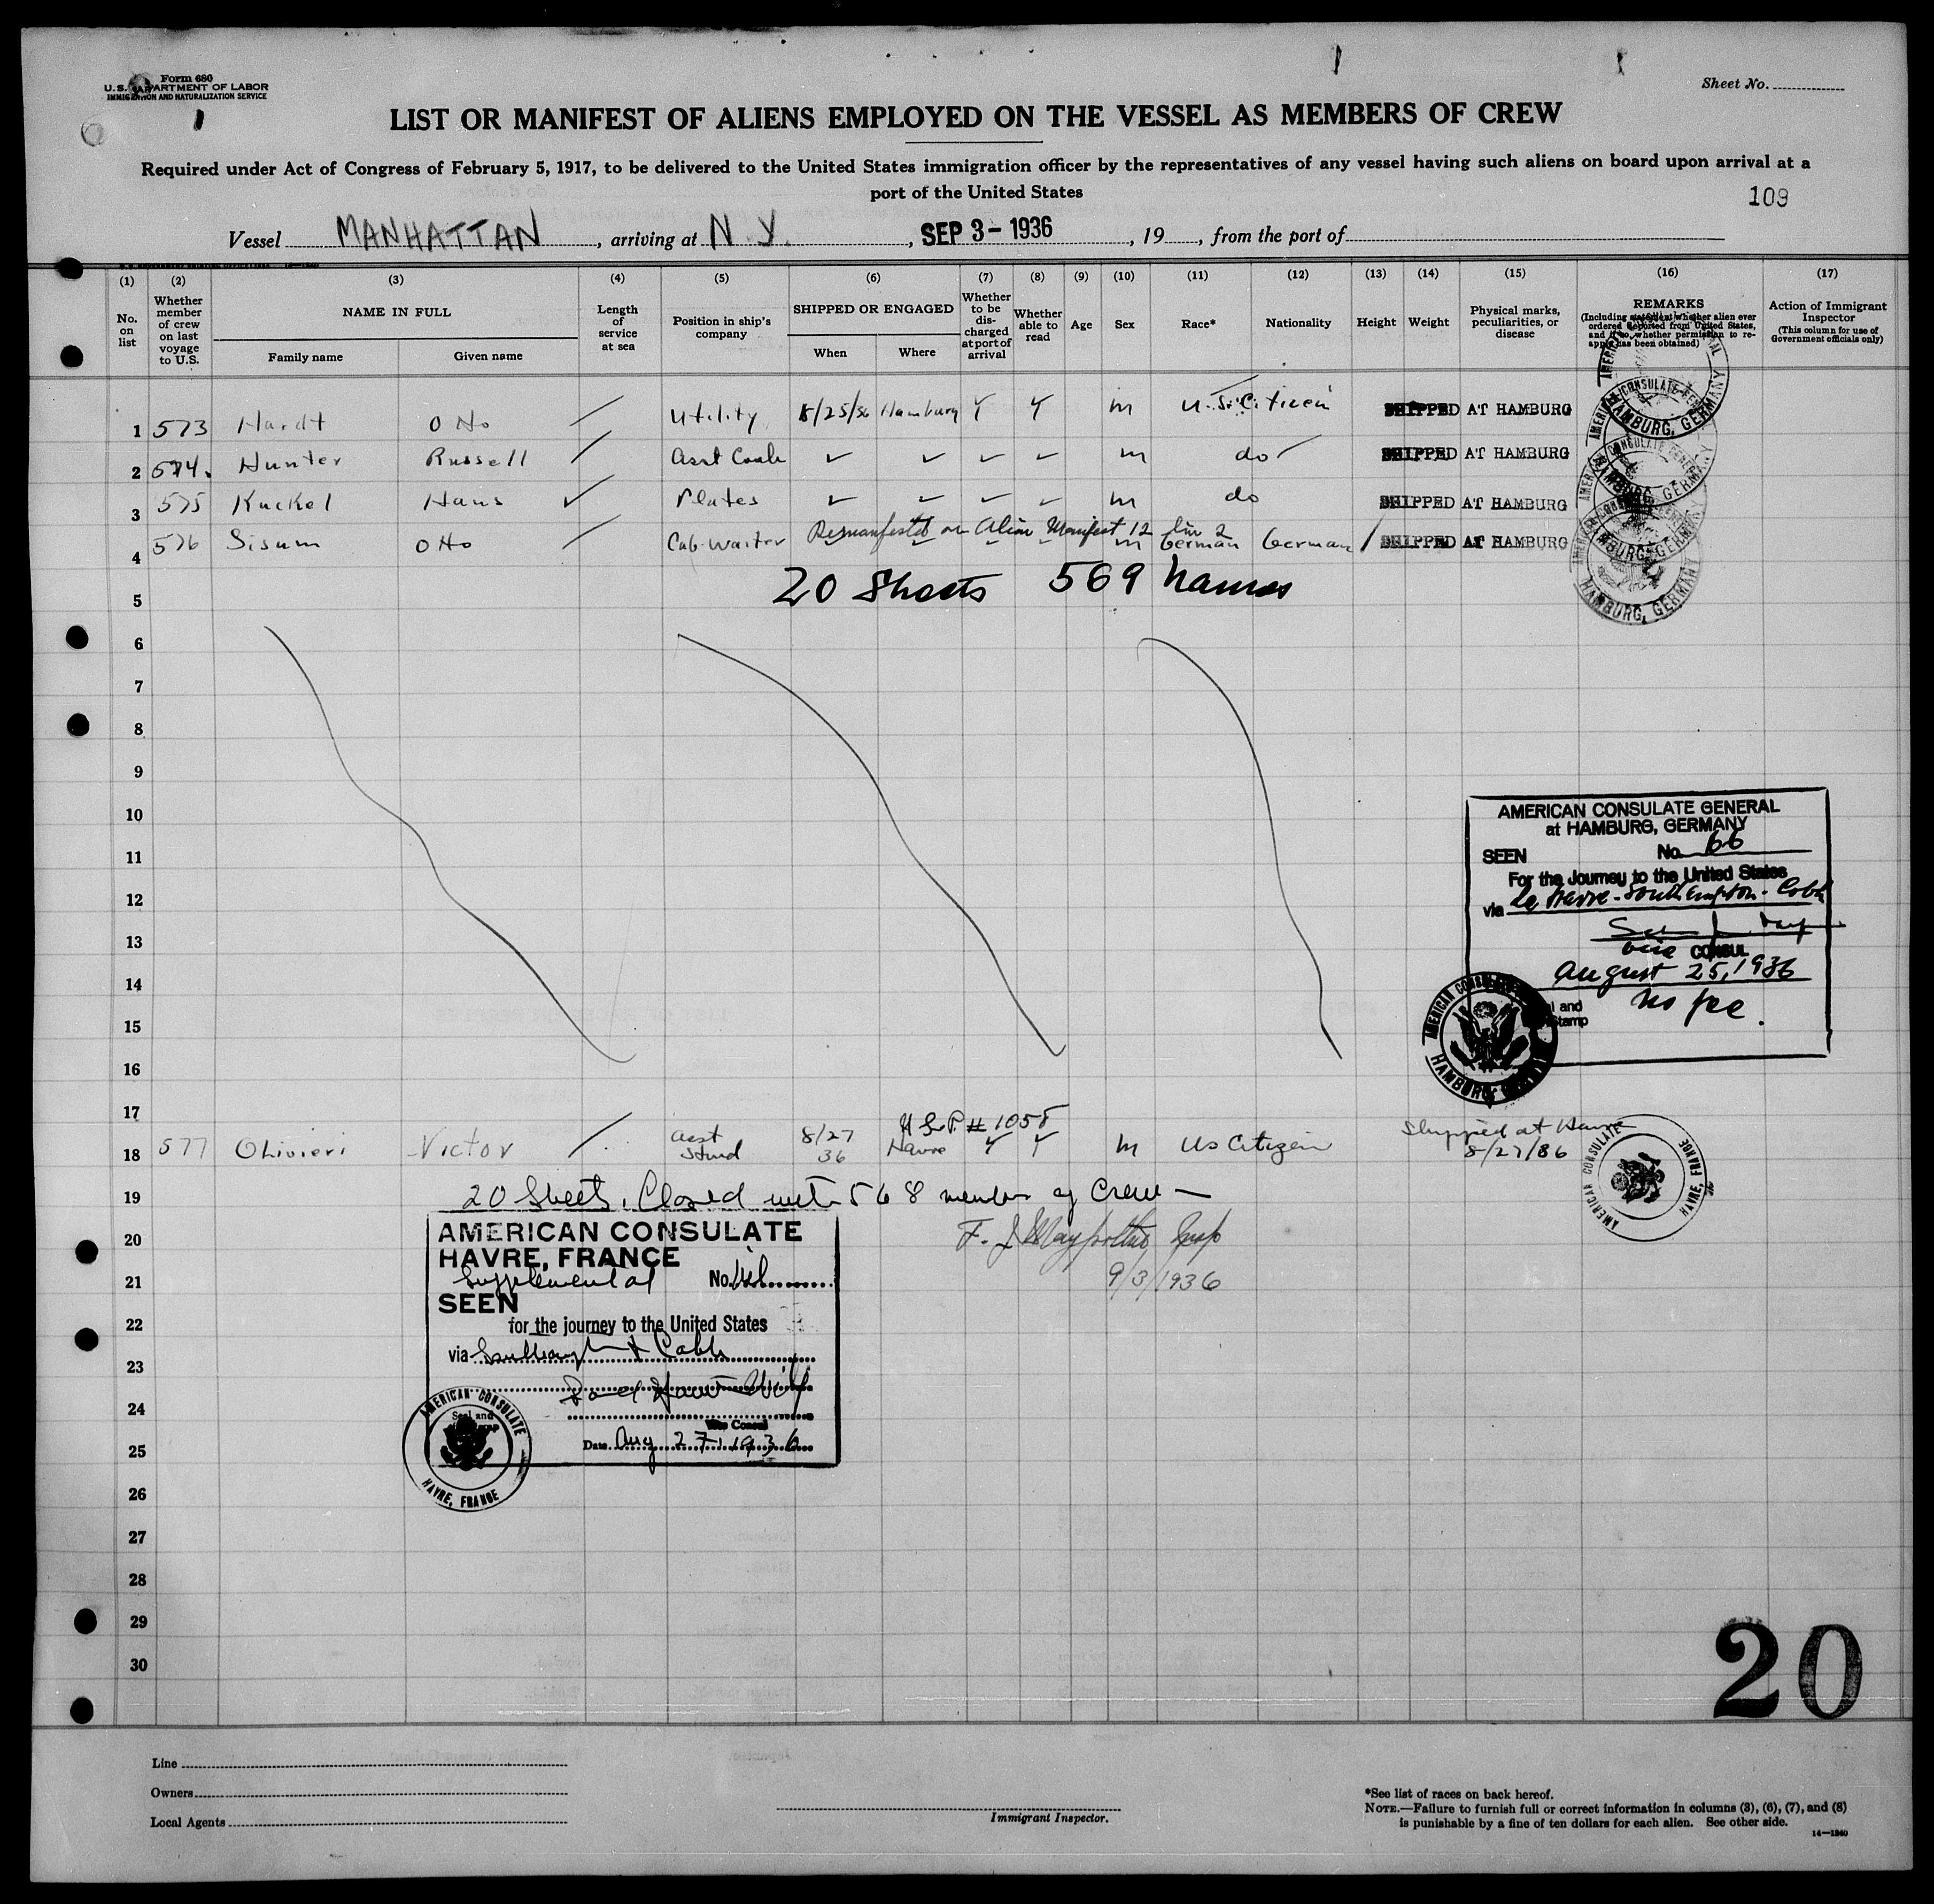 Form 680
U.S. DEPARTMENT OF LABOR
IMMIGRATION AND NATURALIZATION SERVICE
Sheet No.
LIST OR MANIFEST OF ALIENS EMPLOYED ON THE VESSEL AS MEMBERS OF CREW
Required under Act of Congress of February 5, 1917, to be delivered to the United States immigration officer by the representatives of any vessel having such aliens on board upon arrival at a
port of the United States
109
Vessel MANHATTAN, arriving at N.Y., SEP 3 - 1936, 19, from the port of
(1) (2) (3) (4) (5) (6) (7) (8) (9) (10) (11) (12) (13) (14) (15) (16) (17)
No. on list
Whether member of crew on last voyage to U.S.
NAME IN FULL
Family name Given name
Length of service at sea
Position in ship's company
SHIPPED OR ENGAGED
When Where
Whether to be discharged at port of arrival
Whether able to read
Age
Sex
Race*
Nationality
Height
Weight
Physical marks, peculiarities, or disease
REMARKS
(Including statement whether alien ever ordered deported from United States, and if so, whether permission to reapply has been obtained)
Action of Immigrant Inspector
(This column for use of Government officials only)
1 573 Hardt Otto Utility 8/25/36 Hamburg Y Y m U.S. Citizen SHIPPED AT HAMBURG
2 574. Hunter Russell Asst Cook m do SHIPPED AT HAMBURG
3 575 Kuckel Hans Plates m do SHIPPED AT HAMBURG
Remanifested on Alien Manifest 12 line 2
4 576 Sisum Otto Cab-Waiter m German German SHIPPED AT HAMBURG
AMERICAN CONSULATE GENERAL
HAMBURG, GERMANY
5 20 Sheets 569 names
6
7
8
9
10
11
12
13
14
15
16
17
AMERICAN CONSULATE GENERAL
at HAMBURG, GERMANY
SEEN No. 66
For the Journey to the United States
via Le Havre - Southampton - Cobh
Vice CONSUL
August 25, 1936
no fee.
AMERICAN CONSULATE
HAMBURG, GERMANY
# 1058
18 577 Olivieri Victor Asst Stwd 8/27 36 Havre Y Y m US Citizen Shipped at Havre
8/27/36
AMERICAN CONSULATE
HAVRE, FRANCE
19 20 Sheets, Closed with 568 members of Crew —
20
9/3/1936
21
22
23
24
25
26
27
28
29
30
AMERICAN CONSULATE
HAVRE, FRANCE
Supplemental No.
SEEN
for the journey to the United States
via Southampton & Cobh
Vice Consul
Date Aug 27, 1936
Seal and
AMERICAN CONSULATE
HAVRE, FRANCE
20
Line
Owners
Local Agents
Immigrant Inspector.
*See list of races on back hereof.
NOTE.—Failure to furnish full or correct information in columns (3), (6), (7), and (8)
is punishable by a fine of ten dollars for each alien. See other side.
14—1240